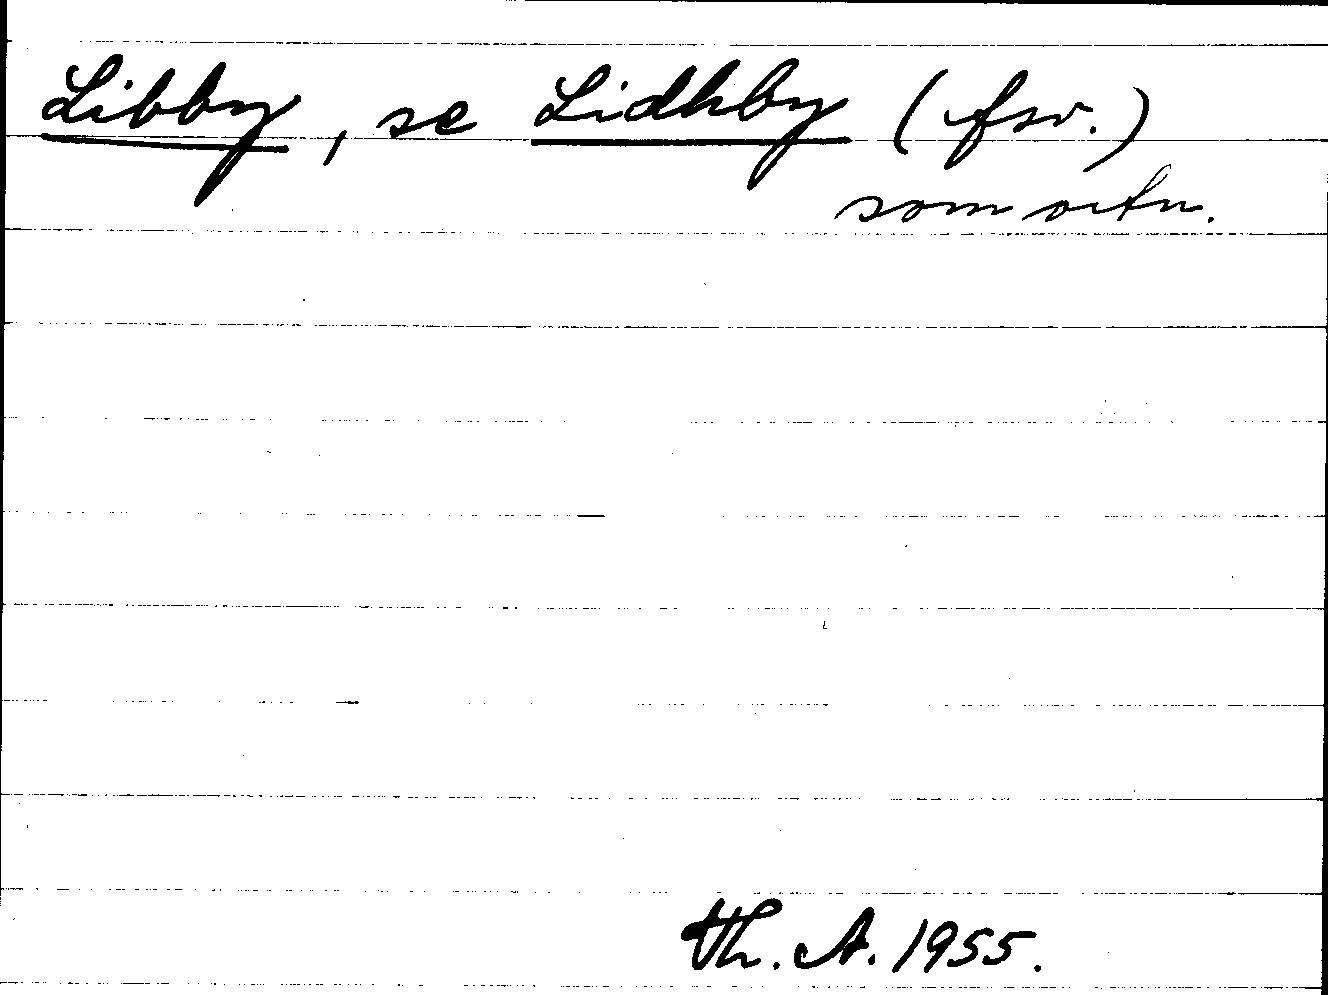 Libby, se Lidhby (fsv.)
som ortn.
Th. A. 1955.